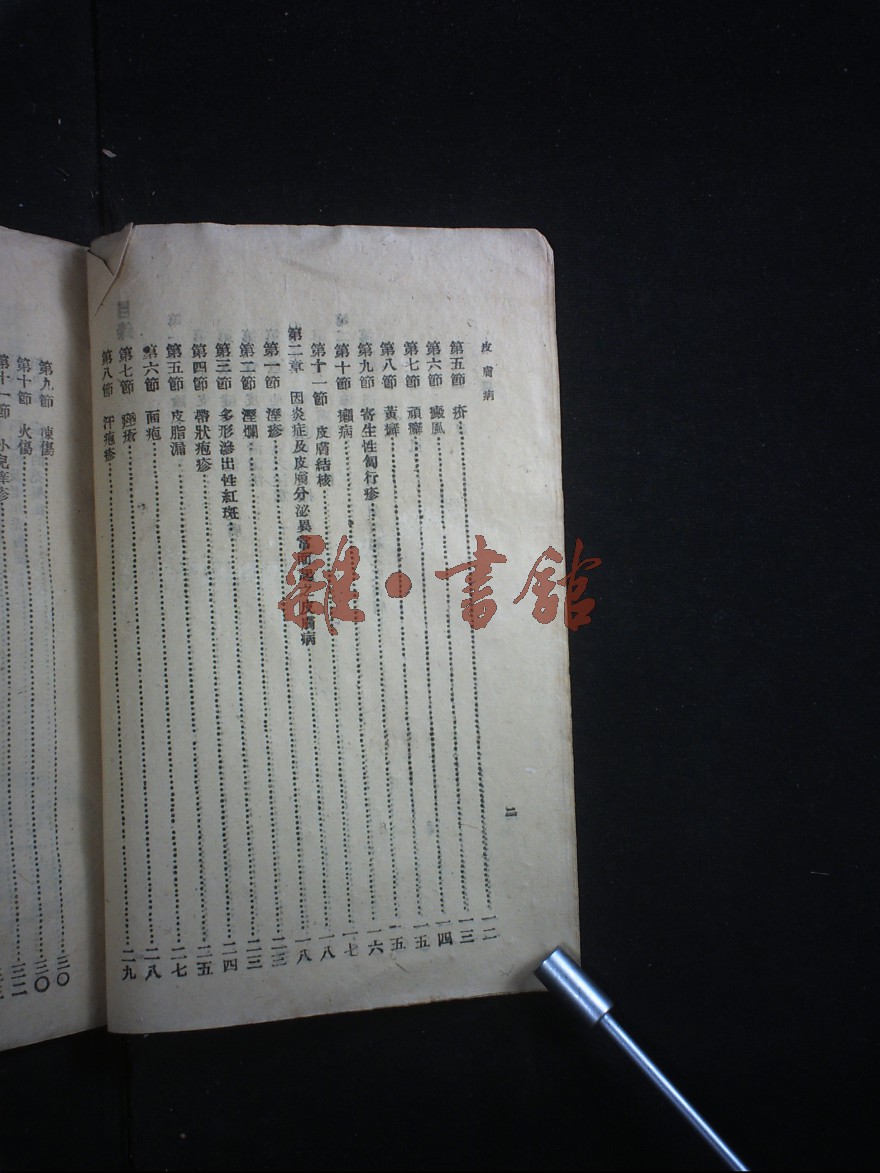 皮膚病 二
第五節 疥 一二
第六節 癜風 一三
第七節 頑癬 一四
第八節 黃癬 一五
第九節 寄生性匐行疹 一五
第十節 癩病 一六
第十一節 皮膚結核 一七
第二章 因炎症及皮膚分泌異常而起之皮膚病 一八
第一節 溼疹 一八
第二節 溼爛 二三
第三節 多形滲出性紅斑 二三
第四節 帶狀疱疹 二四
第五節 皮脂漏 二五
第六節 面疱 二七
第七節 痤瘡 二八
第八節 汗疱疹 二九
第九節 凍傷 三〇
第十節 火傷 三〇
第十一節 小兒痒疹 三二
雜·書館